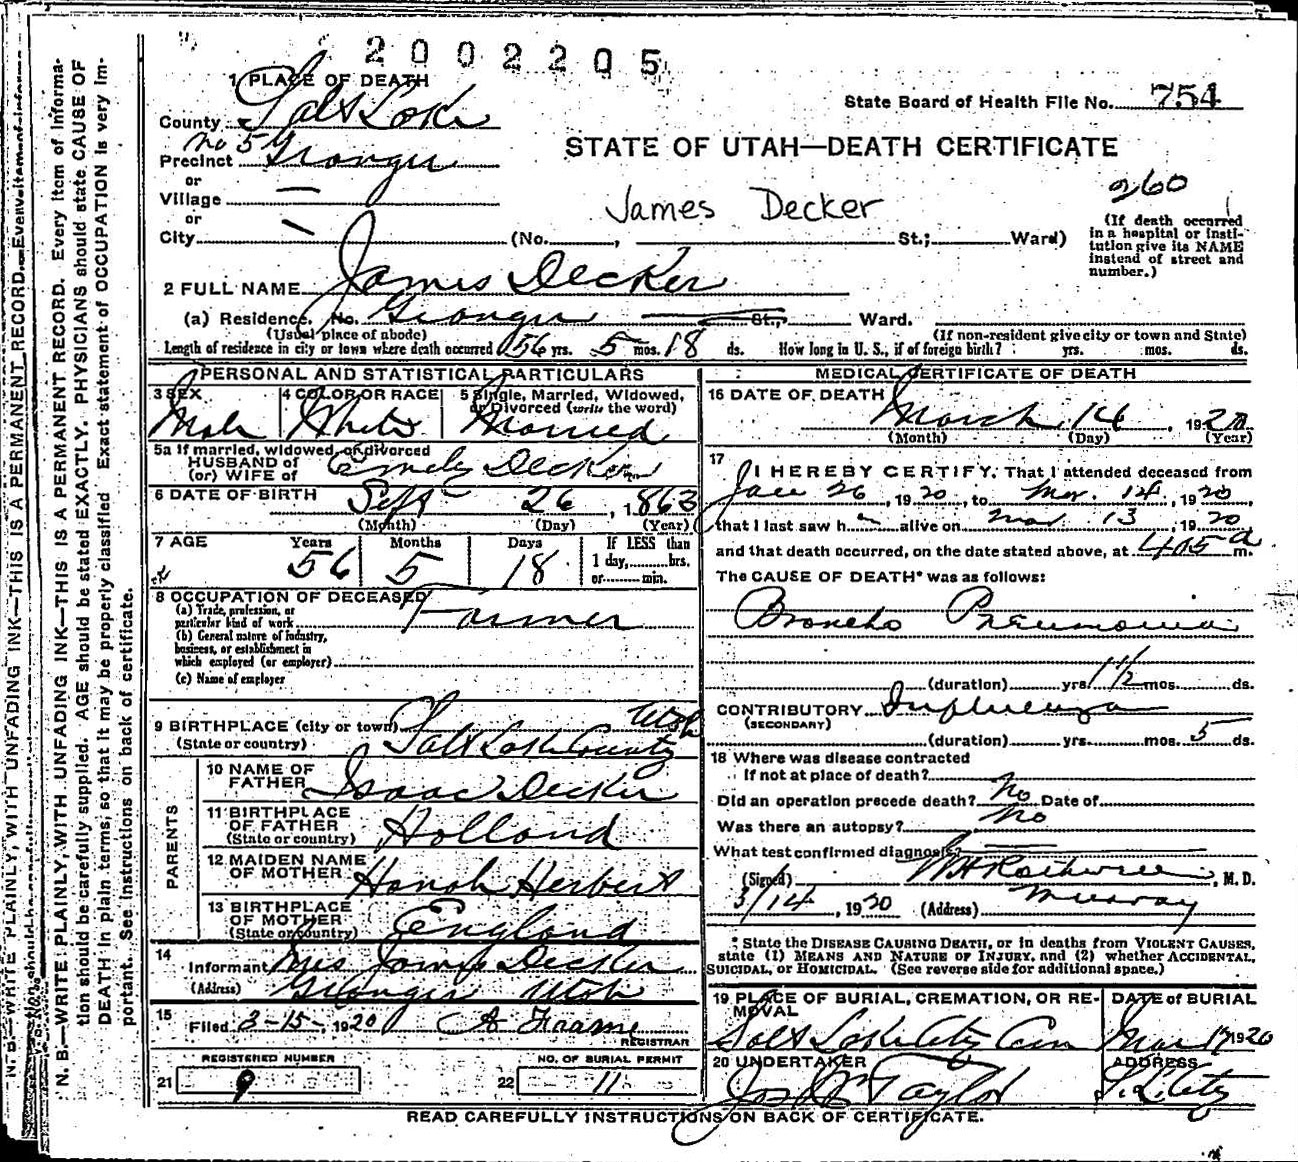 2002205
1 PLACE OF DEATH
State Board of Health File No. 754
County Salt Lake
STATE OF UTAH—DEATH CERTIFICATE
No 54
Precinct Granger
or
Village —
260
James Decker
or
City (No. , St.; Ward)
(If death occurred in a hospital or institution give its NAME instead of street and number.)
2 FULL NAME James Decker
(a) Residence. No. Granger St., Ward.
(Usual place of abode) (If non-resident give city or town and State)
Length of residence in city or town where death occurred 56 yrs. 5 mos. 18 ds. How long in U. S., if of foreign birth? yrs. mos. ds.
PERSONAL AND STATISTICAL PARTICULARS
3 SEX Male
4 COLOR OR RACE White
5 Single, Married, Widowed, or Divorced (write the word) Married
5a If married, widowed, or divorced
HUSBAND of
(or) WIFE of Emely Decker
6 DATE OF BIRTH Sept 26, 1863
(Month) (Day) (Year)
7 AGE Years 56 Months 5 Days 18 If LESS than 1 day, hrs. or min.
8 OCCUPATION OF DECEASED
(a) Trade, profession, or particular kind of work Farmer
(b) General nature of industry, business, or establishment in which employed (or employer)
(c) Name of employer
9 BIRTHPLACE (city or town) Salt Lake County Utah
(State or country)
PARENTS
10 NAME OF FATHER Isaac Decker
11 BIRTHPLACE OF FATHER (State or country) Holland
12 MAIDEN NAME OF MOTHER Hanah Herbert
13 BIRTHPLACE OF MOTHER (State or country) England
14 Informant Mrs James Decker
(Address) Granger Utah
15 Filed 3-15-1920 A Frame
REGISTRAR
REGISTERED NUMBER
21 9
NO. OF BURIAL PERMIT
22 11
MEDICAL CERTIFICATE OF DEATH
16 DATE OF DEATH March 14, 1920
(Month) (Day) (Year)
17 I HEREBY CERTIFY, That I attended deceased from
Jan 26, 1920, to Mar. 14, 1920,
that I last saw h alive on Mar 13, 1920
and that death occurred, on the date stated above, at 405 a m.
The CAUSE OF DEATH* was as follows:
Broncho Pneumonia
(duration) yrs. 1 1/2 mos. ds.
CONTRIBUTORY Influenza
(SECONDARY)
(duration) yrs. mos. 5 ds.
18 Where was disease contracted
If not at place of death?
Did an operation precede death? No Date of
Was there an autopsy? No
What test confirmed diagnosis?
(Signed) , M. D.
3/14, 1920 (Address) Murray
* State the DISEASE CAUSING DEATH, or in deaths from VIOLENT CAUSES,
state (1) MEANS AND NATURE OF INJURY, and (2) whether ACCIDENTAL,
SUICIDAL, or HOMICIDAL. (See reverse side for additional space.)
19 PLACE OF BURIAL, CREMATION, OR REMOVAL Salt Lake City Cem
DATE of BURIAL Mar 17 1920
20 UNDERTAKER Jos Wm Taylor
ADDRESS S. L. City
READ CAREFULLY INSTRUCTIONS ON BACK OF CERTIFICATE.
N. B.—WRITE PLAINLY, WITH UNFADING INK—THIS IS A PERMANENT RECORD. Every item of information should be carefully supplied. AGE should be stated EXACTLY. PHYSICIANS should state CAUSE OF
DEATH in plain terms, so that it may be properly classified. Exact statement of OCCUPATION is very important. See instructions on back of certificate.
N. B.—WRITE PLAINLY, WITH UNFADING INK—THIS IS A PERMANENT RECORD.